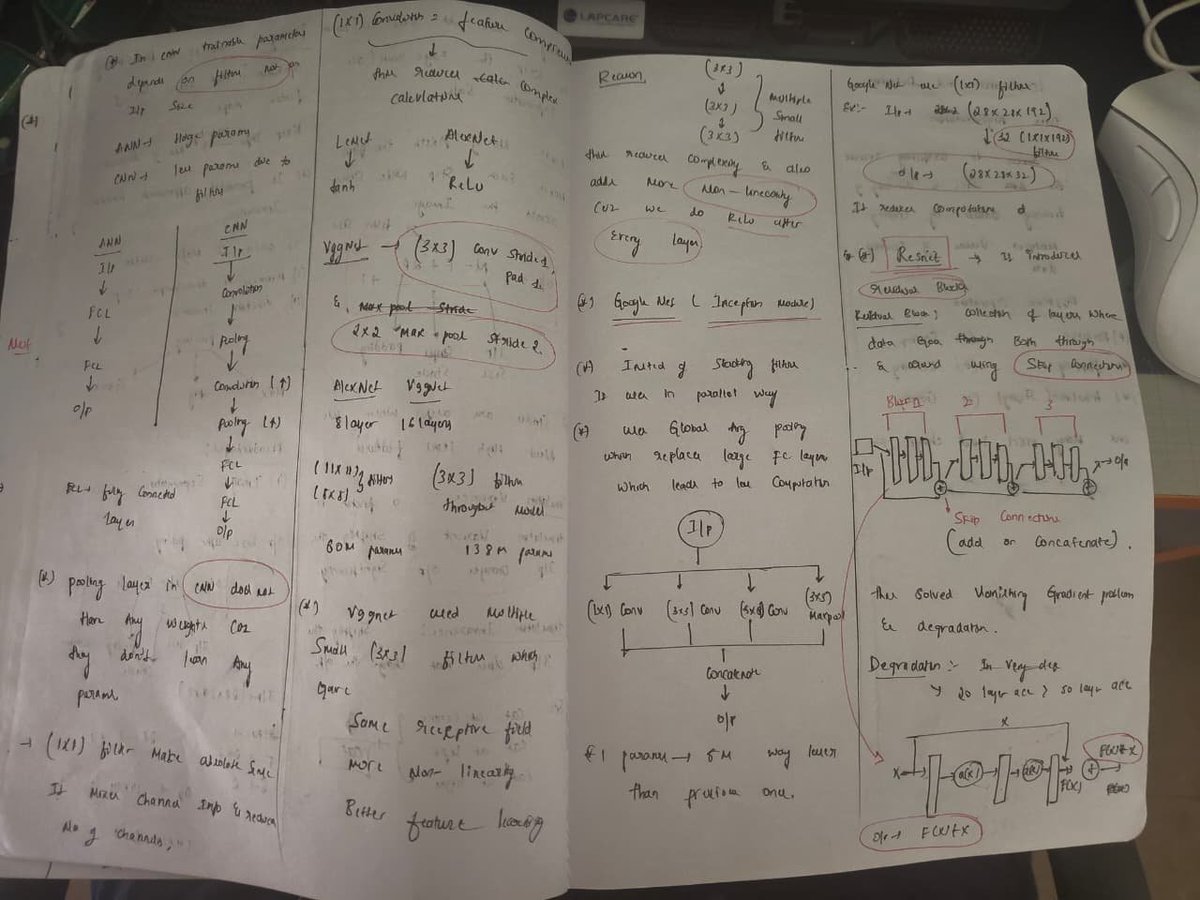 LAPCARE
(*) In CNN trainable parameters
depends on filters not on
I/p Size
(*)
ANN → Huge params
CNN → less params due to
filters
ANN
I/p
↓
FCL
↓
FCL
↓
O/p
CNN
I/p
↓
Convolution
↓
Pooling
↓
Convolution (↑)
↓
Pooling (↑)
↓
FCL
↓
FCL
↓
O/p
Not
FCL → fully Connected
layer
(*) pooling layer in CNN does not
Have Any weights Coz
they don't learn Any
params
→ (1x1) filter Make absolute Sense
It Mixes Channel Info & reduces
No of channels,
(1x1) Convolution = feature
↓
this reduces complex
calculations
LeNet
↓
tanh
AlexNet
↓
ReLU
VggNet → (3x3) Conv stride 1,
Pad 1.
& max pool Stride
2x2 max pool stride 2.
AlexNet VggNet
8 layer 16 layers
(11x11) filters (3x3) filters
(5x5) throughout model
60M params 138M params
(*) Vggnet used multiple
Small (3x3) filters which
Gave
Same receptive field
More Non-linearity
Better feature learning
Reason
(3x3)
↓
(3x3)
↓
(3x3)
Multiple
Small
filters
this reduces Complexity & also
adds More Non-linearity
Coz we do ReLu after
Every layer
(*) Google Net (Inception Module)
(*) Insted of Stacking filters
Is uses in parallel way
(*) uses Global Avg pooling
which replace large FC layers
which leads to low Computation
I/p
(1x1) Conv (3x3) Conv (5x5) Conv (3x3) Maxpool
Concatenate
↓
O/p
params → 5M way lesser
than previous one.
Google Net use (1x1) filter
Ex:- I/p → (28x28x192)
↓ 32 (1x1x192)
filters
o/p → (28x28x32)
It reduces Computations
(*) Resnet → Is introduces
residual Block
Residual Block: collection of layers where
data Goes through Both through
& around using Skip Connections
Block 1 2 3
I/p → O/p
Skip Connections
(add or Concatenate).
this Solved Vanishing Gradient problem
& degradation.
Degradation :- In very deep
↳ 20 layer acc > 50 layer acc
x
x a(x) a(x) F(x) + F(x)+x
O/p → F(x)+x